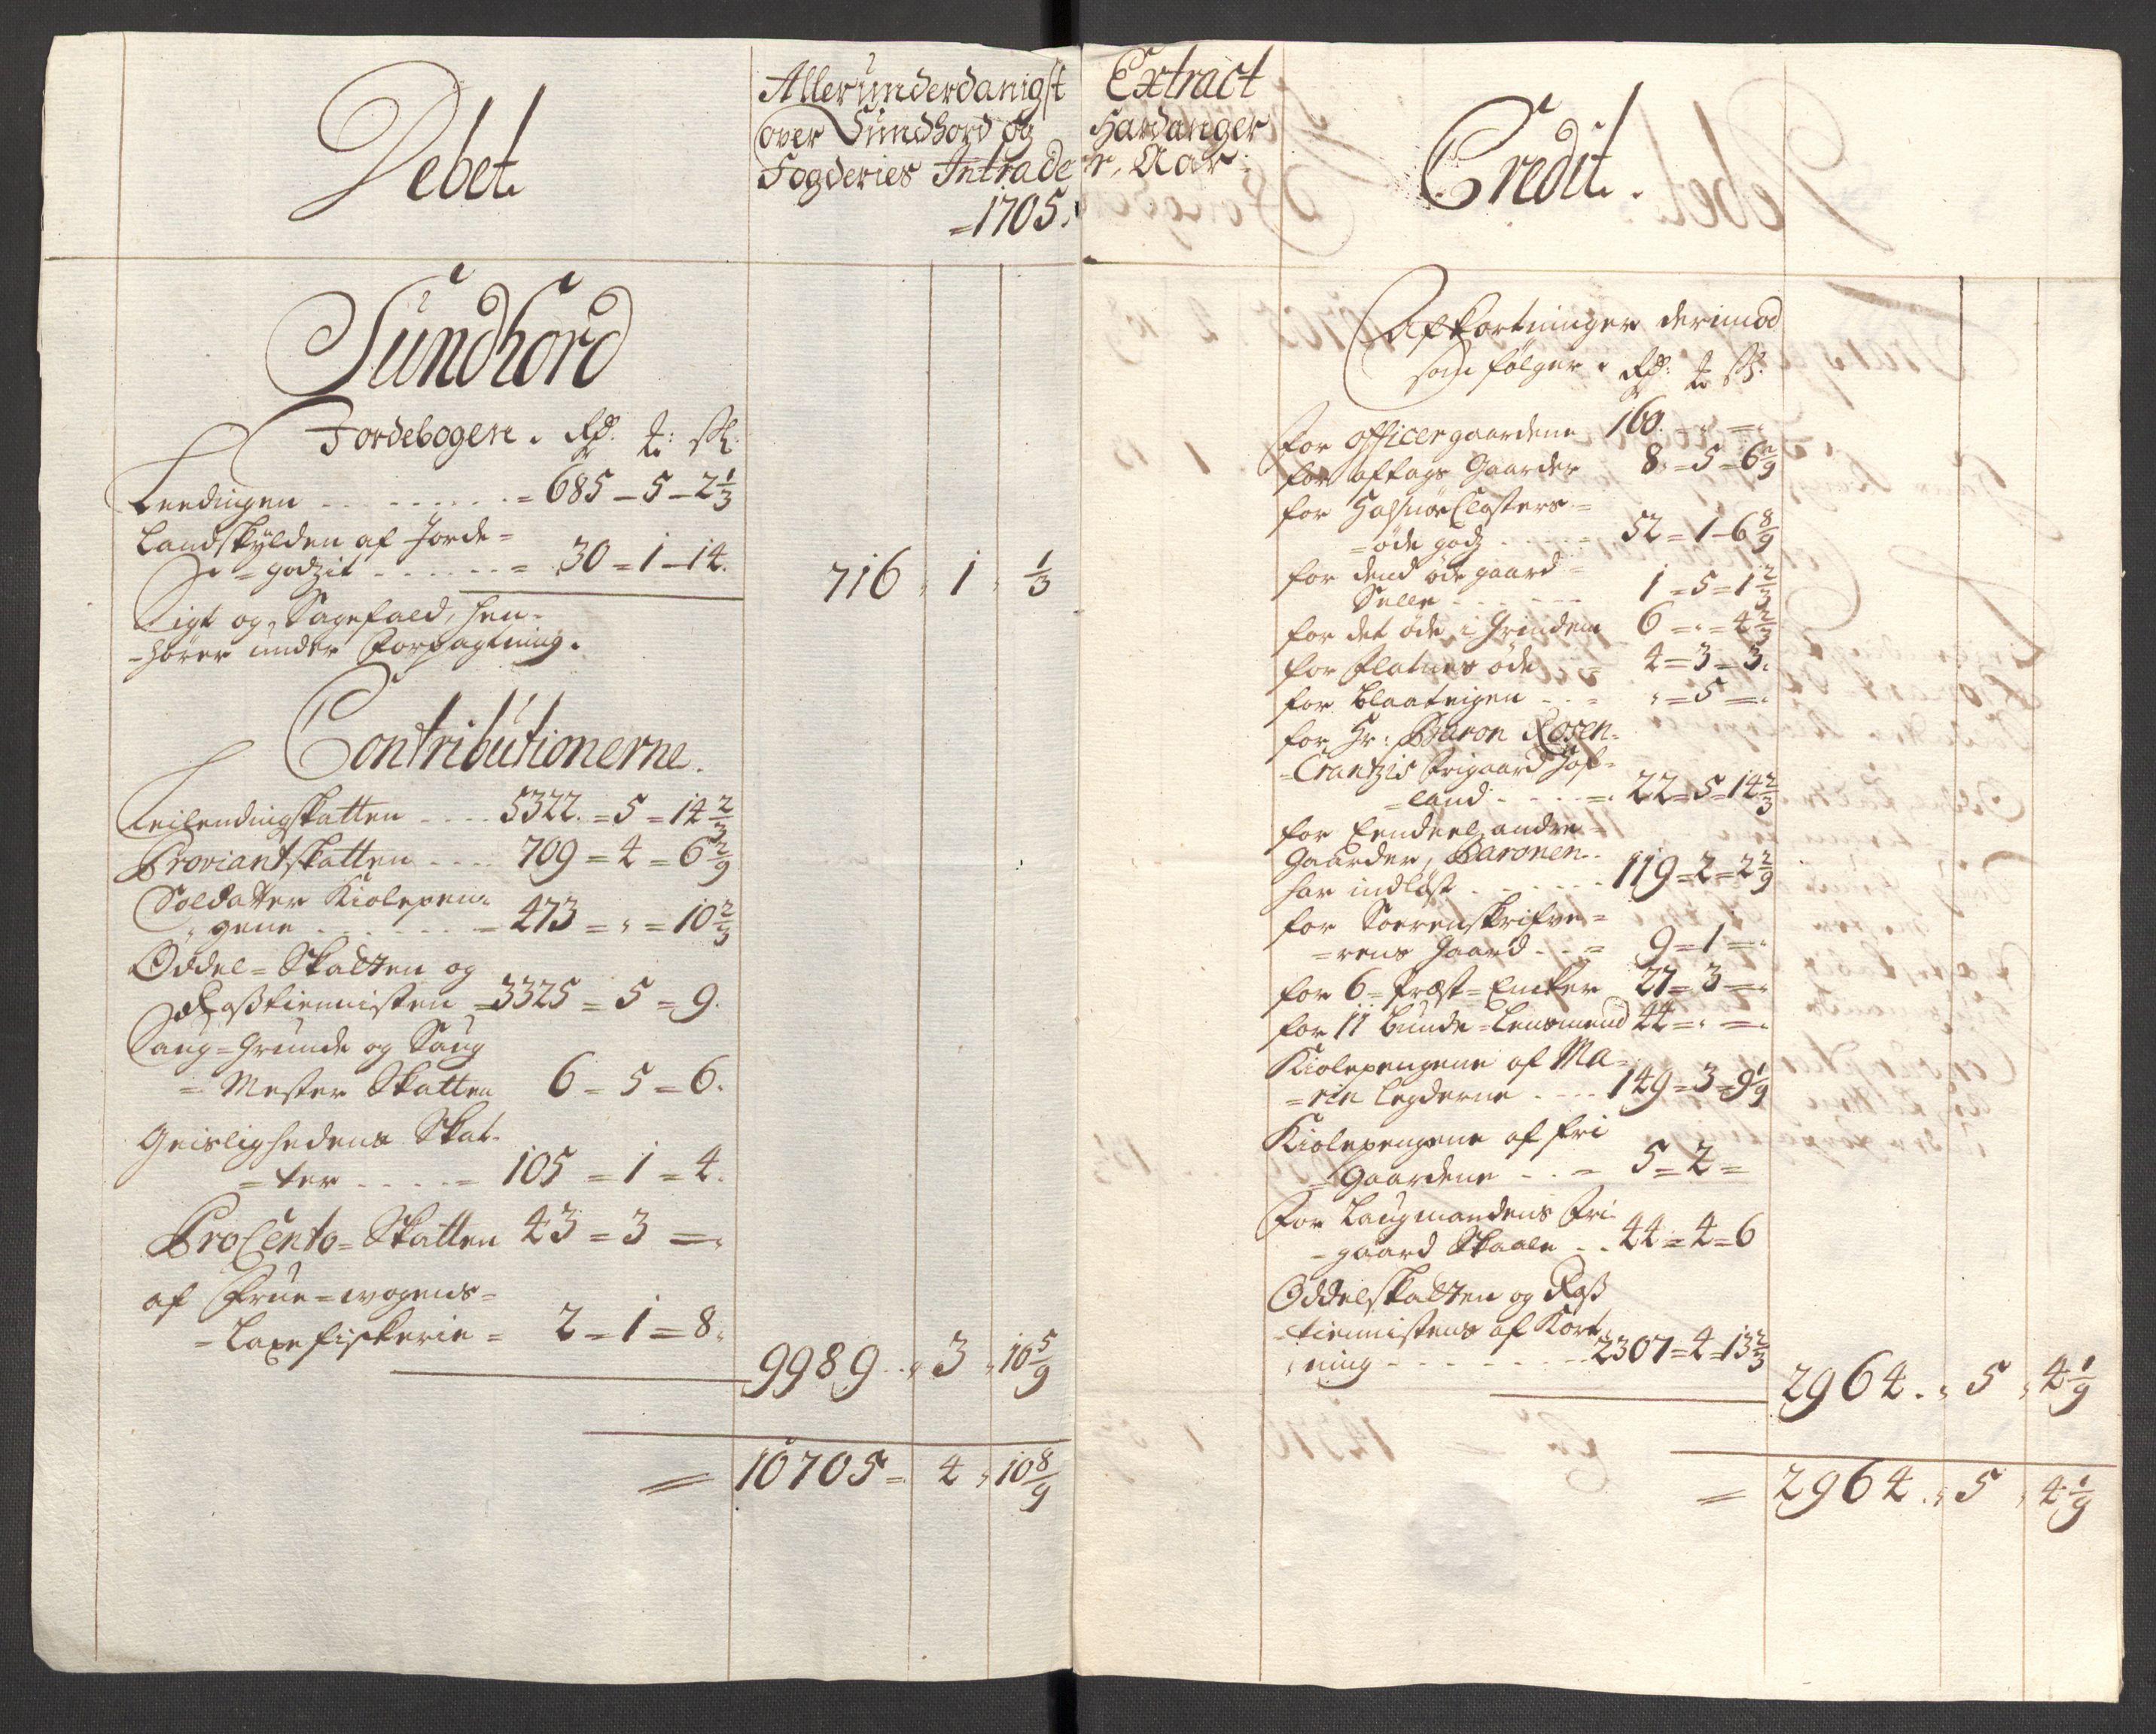 Debet
Allerunderdanigst Extract
over Sundhord og Hardanger
Fogderies Intrader, Aar
=1705.
Sundhord
Jordebogen. Rd. t: sk:
Leedingen - - - - = 685 - 5 - 2 1/3
Landskylden af Jorde=
=godzit - - - - = 30 = 1 - 14.
716 " 1 " 1/3
Sigt og Sagefald, hen=
=hører under Forpagtning.
Contributionerne.
Leilendingskatten - - - 5322. = 5 = 14 2/3
Proviantskatten - - - 709 = 4 = 6 2/9
Soldatter Kiolepen=
"gene - - - - = 473 = " = 10 2/3
Oddel=Skatten og
Rosstiennisten = 3325 = 5 = 9.
Saug=Grunde og Saug
=Mester Skatten 6 = 5 = 6.
Geislighedens Skat=
=ter - - - - = 105 = 1 = 4.
ProCento=Skatten 43 = 3 = "
af Frue=wogens=
=Laxefiskerie = 2 = 1 = 8.
9989 " 3 " 10 5/9
= 10705 = 4 " 10 8/9
Credit.
Afkortninger derimod
som følger. Rd: t sk:
For officergaardene 160. = " = "
for aftags Gaarder 8. = 5 = 6 2/9
for Halsnøe Closters=
=øde godz - - - = 52 = 1 - 6 8/9
for dend øde gaard=
Selle - - - - 1 = 5 = 1 2/3
for det øde i Grinden 6 = " = 4 2/3
for Flatnes øde - = 4 = 3 = 3.
for Blaateigen - - = " = 5 = "
for Hr: Baron Rosen=
=Crantzis frigaard Hof=
=land - - - - = 22 = 5 = 14 2/3
for Eendeel andre=
Gaarder, Baronen
har indløst - - - - 119 = 2 = 2 2/9
for Sorenskrifve=
=rens Gaard - - = 9 = 1 = "
for 6=Præst=Encker 27 = 3 = "
for 11 Bunde=Lensmend 44 = " = "
Kiolepengene af Ma=
=rin Legderne - - - 149 = 3 = 9 1/9
Kiolepengene af fri
=Gaardene - - = 5 = 2 =
For Laugmandens Fri=
=gaard Skaale - - 44 = 4 = 6
Oddelskatten og Ross
=tiennistens af Kort=
"ning - - - - - 2307 = 4 = 13 2/3
2964. " 5 " 4 1/9
= 2964 " 5 " 4 1/9